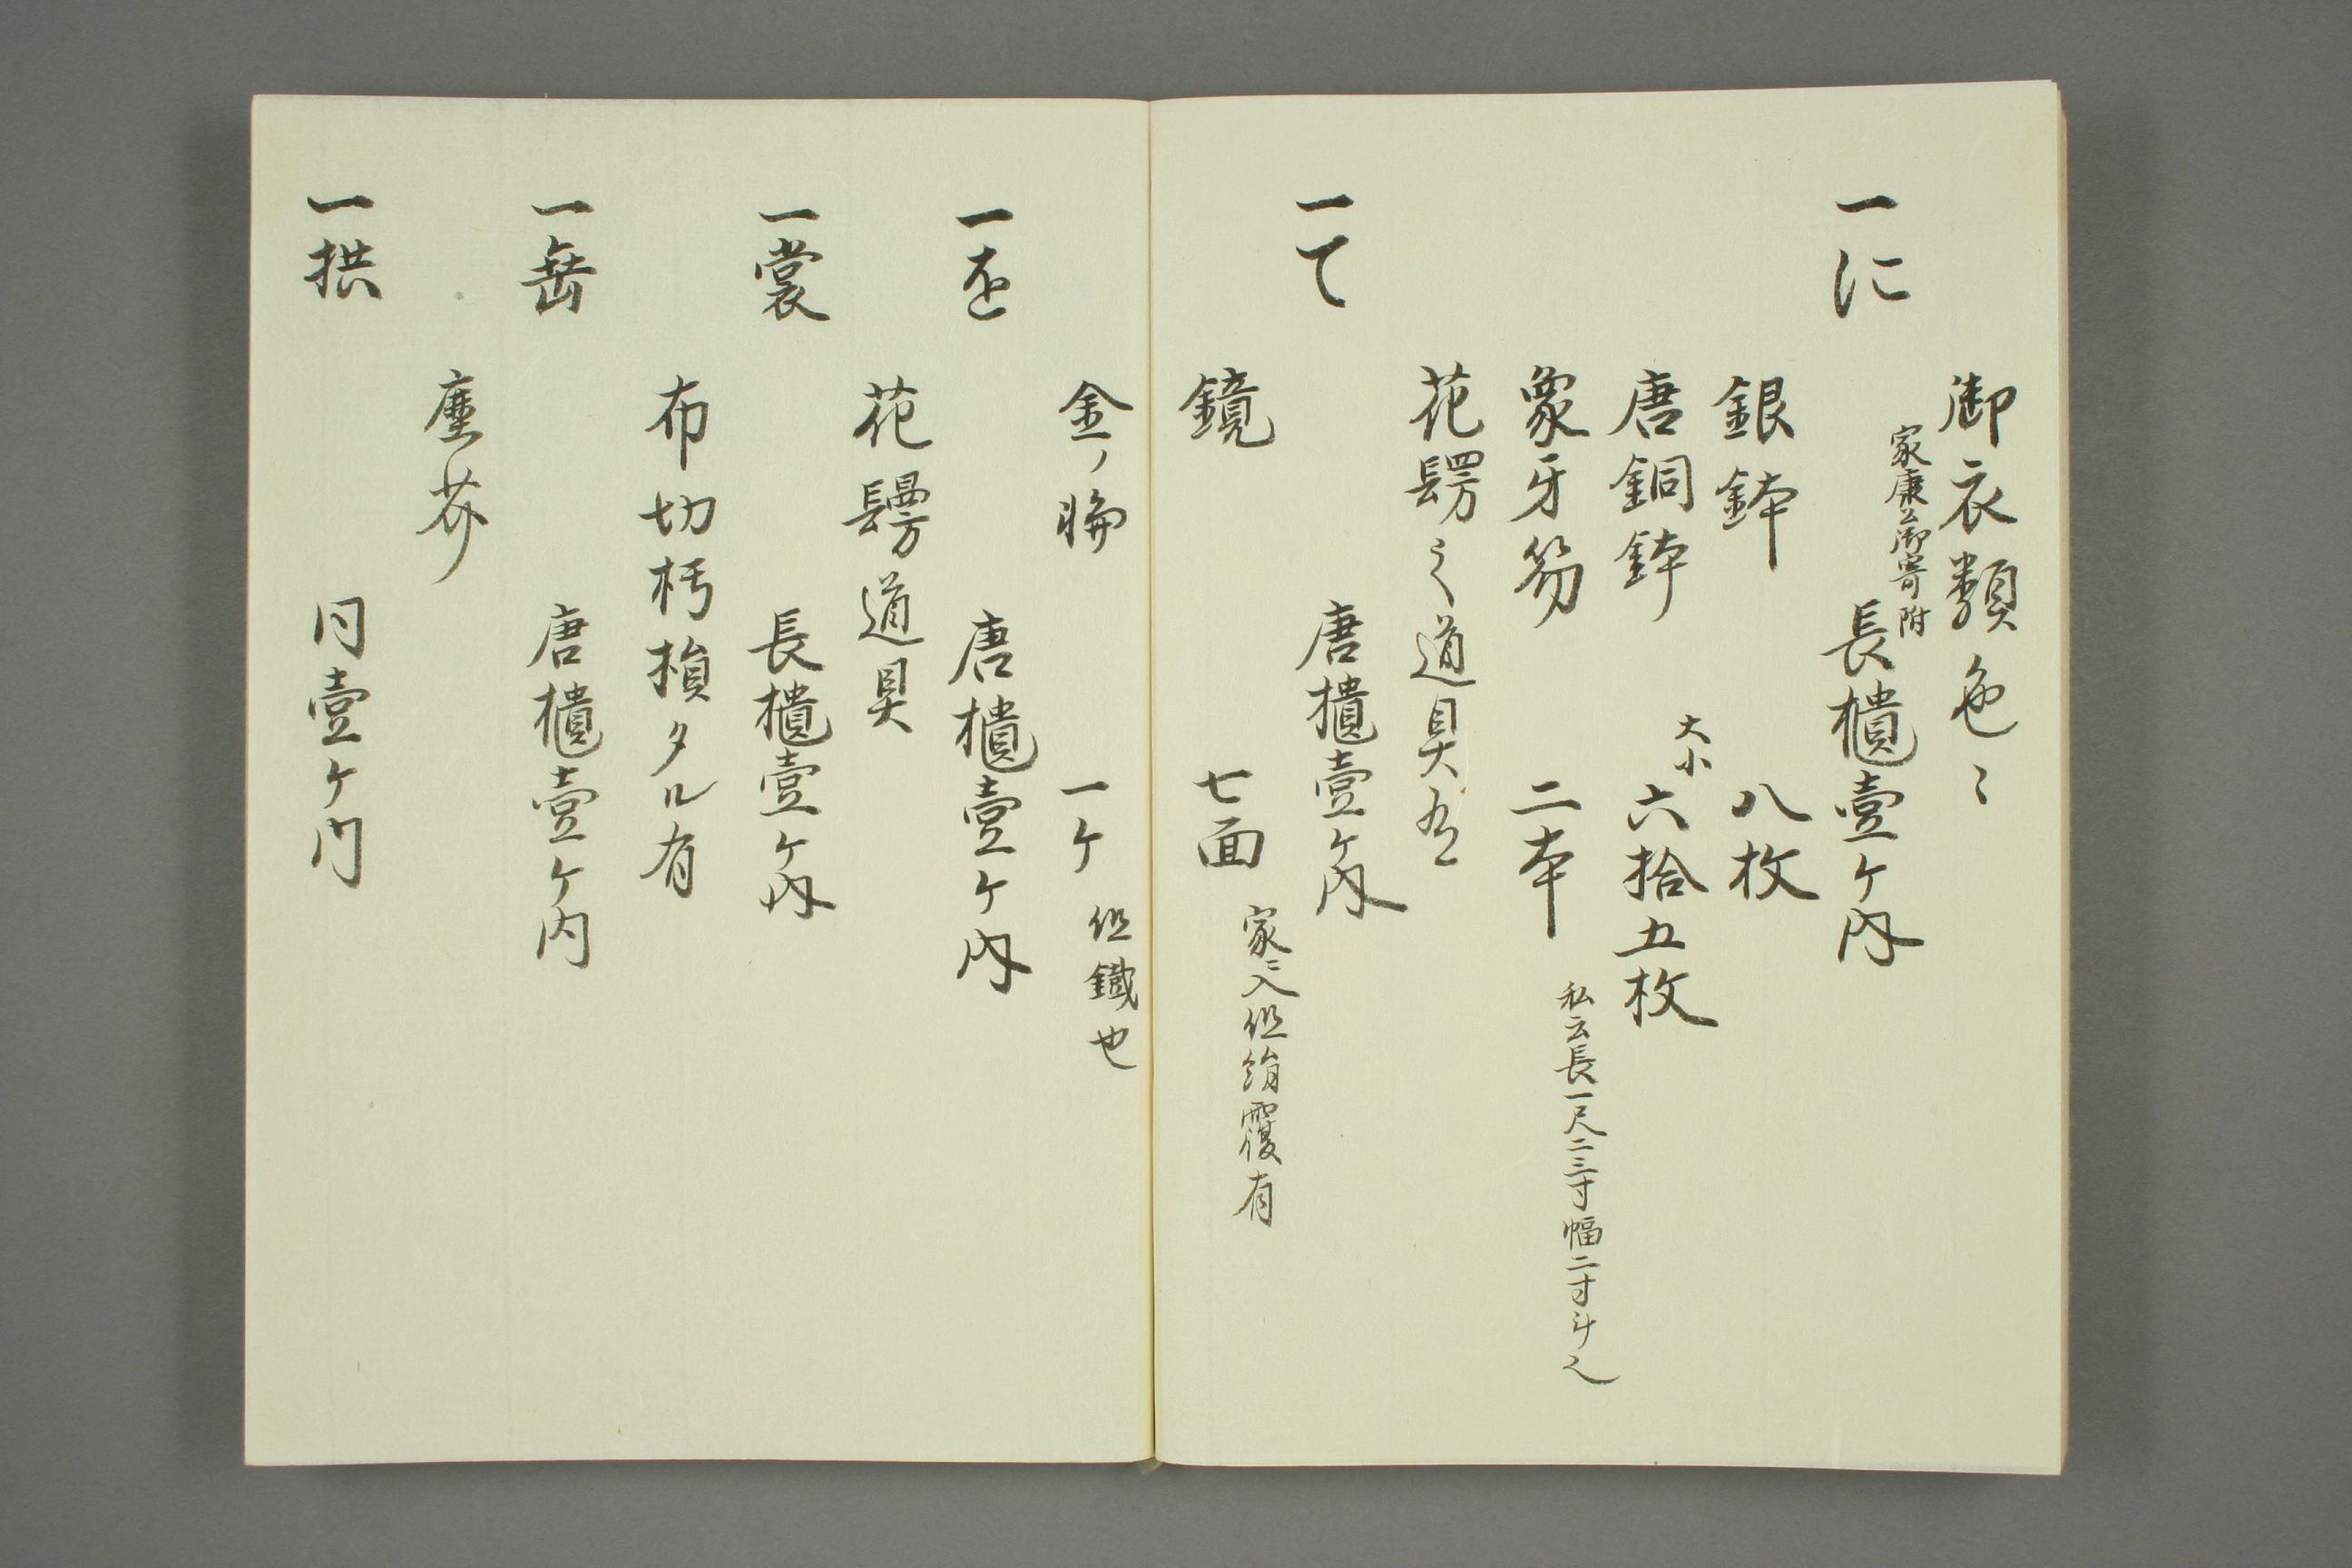 御衣類色〻
家康公御寄附
一に　長櫃壹ケ内
銀鉢　八枚
唐銅鉢　大小六拾五枚
象牙笏　二本　私云長一尺二三寸幅二寸斗
花髩之道具
一て　唐櫃壹ケ内
鏡　七面　家ニ入但絹覆有
金ノ　一ケ　但鐵也
一を　唐櫃壹ケ内
花鬘道具
一裳　長櫃壹ケ内
布切朽損タル有
一　唐櫃壹ケ内
塵芥
一拱　同壹ケ内